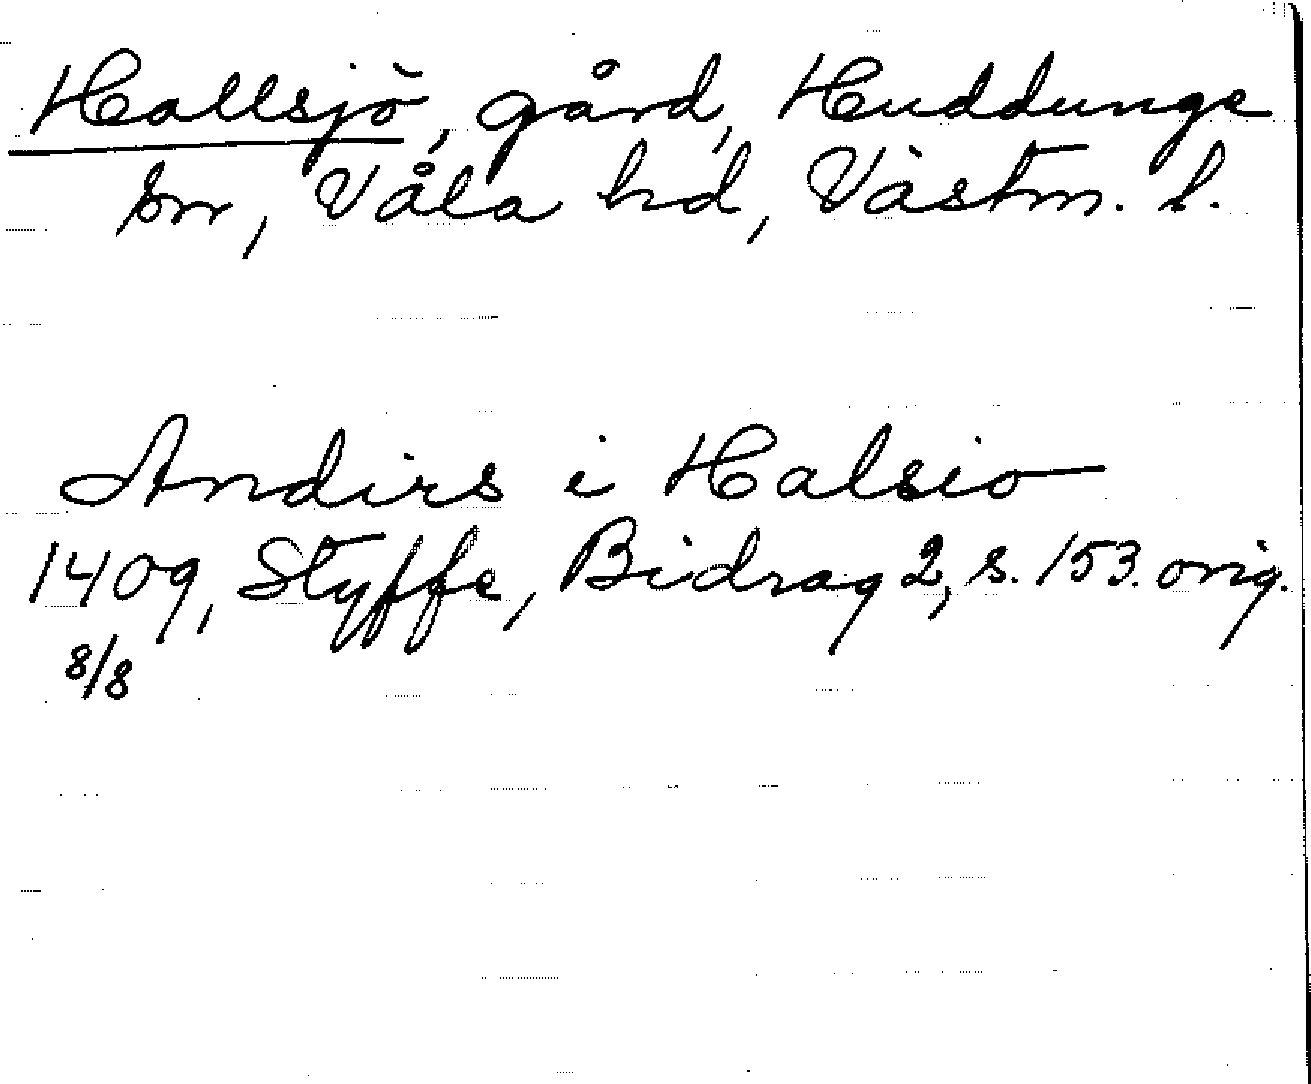 Hallsjö, gård, Huddunge
sn, Våla hd, Västm. l.
Andirs i Halsio
1409, Styffe, Bidrag 2, s. 153. orig.
8/8